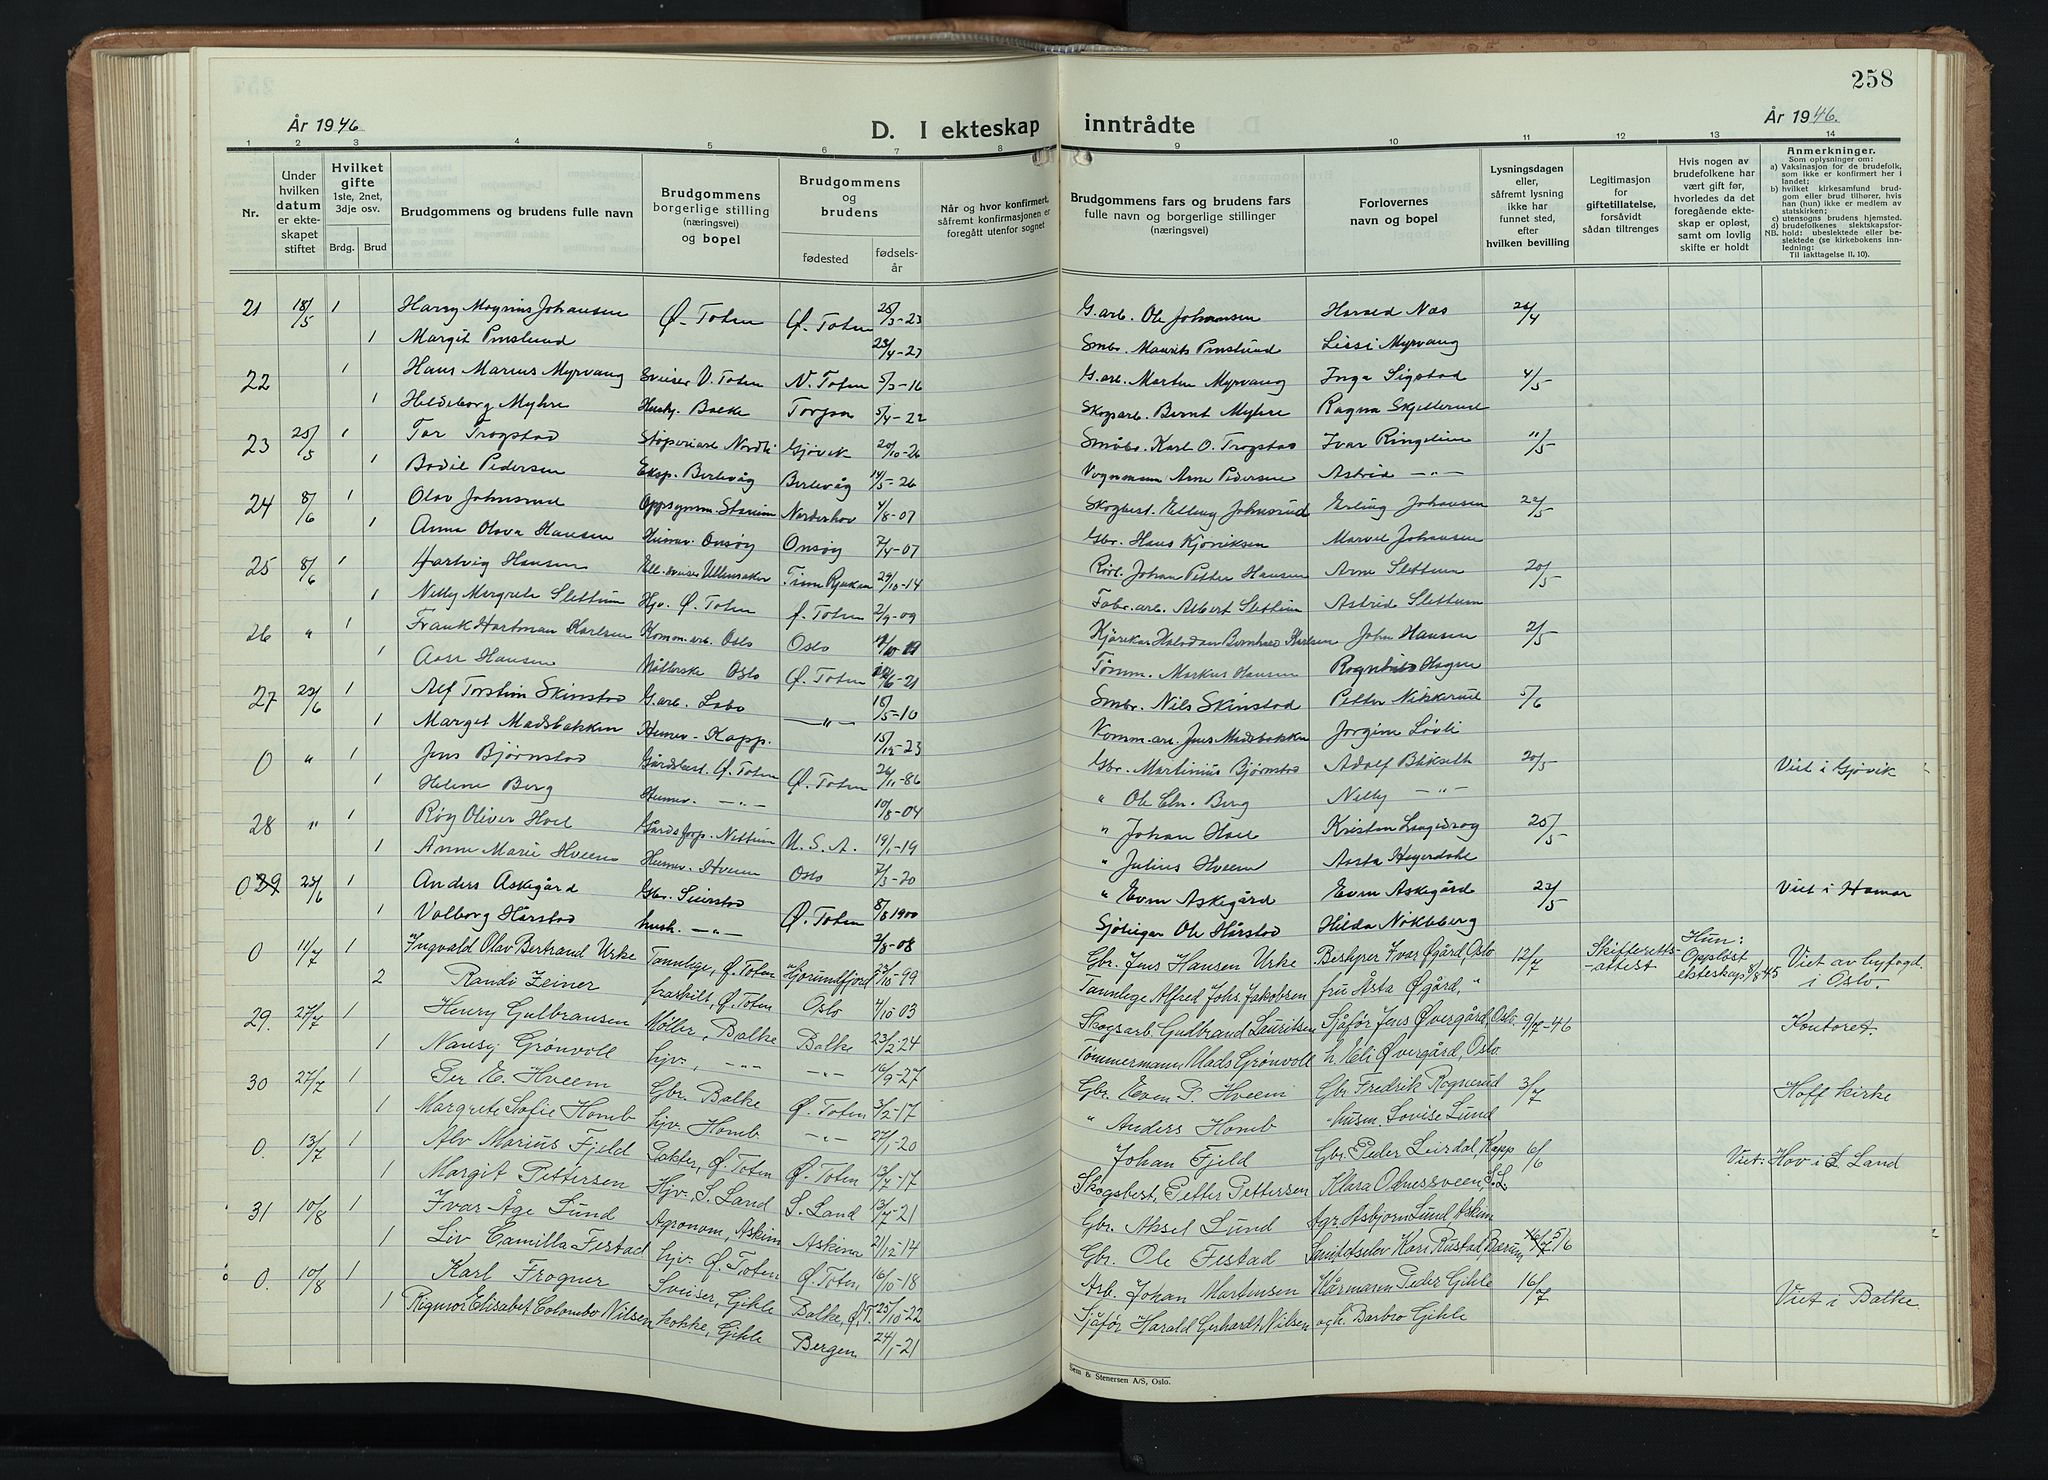 258
År 1946
D. I ekteskap inntrådte
År 1946.
1 2 3 4 5 6 7 8 9 10 11 12 13 14
Nr.
Under hvilken datum er ekteskapet stiftet
Hvilket gifte
1ste, 2net, 3dje osv.
Brdg. Brud
Brudgommens og brudens fulle navn
Brudgommens borgerlige stilling (næringsvei) og bopel
Brudgommens og brudens
fødested
fødselsår
Når og hvor konfirmert, såfremt konfirmasjonen er foregått utenfor sognet
Brudgommens fars og brudens fars fulle navn og borgerlige stillinger (næringsvei)
Forlovernes navn og bopel
Lysningsdagen eller, såfremt lysning ikke har funnet sted, efter hvilken bevilling
Legitimasjon for giftetillatelse, forsåvidt sådan tiltrenges
Hvis nogen av brudefolkene har vært gift før, hvorledes da det foregående ekteskap er opløst, samt om lovlig skifte er holdt
Anmerkninger.
Som oplysninger om:
a) Vaksinasjon for de brudefolk, som ikke er konfirmert her i landet;
b) hvilket kirkesamfund brudgom eller brud tilhører, hvis han (hun) ikke er medlem av statskirken;
c) utensogns brudens hjemsted.
d) brudefolkenes slektskapsforhold: ubeslektede eller beslektede (se kirkebokens innledning:
NB.
Til iakttagelse II, 10).
21 18/5 1 Harry Magnus Johansen Ø. Toten Ø. Toten 25/3-23 G.arb. Ole Johansen Harald Næs 26/4
1 Margit Pinslund 23/4-27 Smbr. Maurits Pinslund Lissi Myrvang
22 1 Hans Marius Myrvang Sveiser V. Toten N. Toten 5/3-16 G.arb. Marten Myrvang Inga Sigstad 4/5
1 Heldeborg Myhre Hushj. Balke Torpa 5/4-22 Skogsarb. Bernt Myhre Ragna Skjellerud
23 25/5 1 Tor Trogstad Støperiarb. Nordli Gjøvik 20/10-26 Småbr. Karl O. Trogstad Ivar Ringelien 11/5
1 Bodil Pedersen Eksp. Berlevåg Berlevåg 14/5-26 Vognmann Arne Pedersen Astrid —"—
24 8/6 1 Olav Johnsrud Oppsynsm. Norderhov 4/8-07 Skogbest. Elling Johnsrud Erling Johansen 22/5
1 Anna Olava Hansen Husm. Onsøy Onsøy 7/4-07 Gbr. Hans Kjøniksen Marvel Johansen
25 8/6 1 Hartvig Hansen Ullensaker Tinn Rjukan 29/10-14 Rørl. Johan Petter Hansen Arne Slettum 20/5
1 Nelly Margrete Slettum Hjv. Ø. Toten Ø. Toten 2/9-09 Fabr.arb. Albert Slettum Astrid Slettum
26 " 1 Frank Hartman Karlsen Komm.arb. Oslo Oslo Halvdan Bernhard Karlsen John Hansen 2/5
1 Aase Hansen Oslo Ø. Toten Tømm. Markus Hansen Ragnhild Hagen
27 23/6 1 Alf Torstein Skinstad G.arb. Labo —"— 15/5-10 Smbr. Nils Skinstad Petter Nøkkerud 5/6
1 Marget Madsbakken Husm. Kapp. 15/12-23 Komm.arb. Jens Madsbakken Jorgine Løvli
0 " 1 Jens Bjørnstad Gårdsbest. Ø. Toten Ø. Toten 26/11-86 Gbr. Martinius Bjørnstad Adolf Bakseth 20/5 Viet i Gjøvik
1 Helene Berg Husm. —"— 10/8-04 " Ole Chr. Berg Nelly —"—
28 " 1 Roy Oliver Hoel Gårdsforp. Nettum U.S.A. 19/1-19 " Johan Hoel Kristen Langedrag 25/5
1 Anne Marie Hveem Husm. Hveem Oslo 7/3-20 " Julius Hveem Aasta Heyerdahl
0 29 23/6 1 Anders Askegård Gbr. Seierstad 8/8 1900 " Even Askegård Even Askegård 22/5 Viet i Hamar
1 Valborg Hårstad hush. —"— Ø. Toten 2/8-08 Sjøteigar Ole Hårstad Hilda Nøkleberg
0 11/7 1 Ingvald Olav Bertrand Urke Tannlege, Ø. Toten Hjørundfjord 22/10-99 Gbr. Jens Hansen Urke Bestyrer Ivar Øgård, Oslo 12/7 Skifteretts-attest Hun: Oppløst ekteskap 2/8 45 Viet av byfogd. i Oslo.
2 Randi Zeiner fraskilt, Ø. Toten Oslo 4/10 03 Tannlege Alfred Johs. Jakobsen fru Åsta Øgård, "
29. 27/7 1 Henry Gulbransen Møller, Balke Balke 23/2-24 Skogsarb. Gudbrand Lauritsen Sjåfør Jens Øvergård, Oslo 9/7-46 Kontoret
1 Nansy Grønvoll hjv., —"— —"— 16/9-27 Tømmermann Mads Grønvoll h. Eli Øvergård, Oslo
30 27/7 1 Per E. Hveem Gbr. Balke Ø. Toten 3/2-17 Gbr. Even P. Hveem Gbr. Fredrik Rognerud 3/7 Hoff kirke
1 Margrete Sofie Homb hjv. Homb —"— 27/1-20 " Anders Homb husm. Lovise Lund
0. 13/7 1 Alv Marius Fjeld Pakter, Ø. Toten Ø. Toten 13/7-17 Johan Fjeld Gbr. Peder Leirdal, Kapp 6/6 Viet: Hov i S. Land
1 Margit Pettersen Hjv., S. Land S. Land 13/7-21 Skogsbest. Petter Pettersen Klara Odnessveen, S.L.
31 10/8 1 Ivar Åge Lund Agronom, Askim Askim 21/12-14 Gbr. Aksel Lund Agr. Asbjørn Lund, Askim
1 Liv Camilla Festad hjv. Ø. Toten Ø. Toten, 16/10-18 Gbr. Ole Festad Sanitetselev Kari Rustad, Bærum
0. 10/8 1 Karl Frogner Sveiser, Gihle Balke, Ø.T. 25/10-22 Arb. Johan Martinsen Kårmann Peder Gihle 16/7 Viet i Balke
1 Rigmor Elisabet Colombo Nilsen kokke, Gihle Bergen 24/1-21 Sjåfør Harald Gerhardt Nilsen og h. Barbro Gihle
Sem & Stenersen A/S, Oslo.